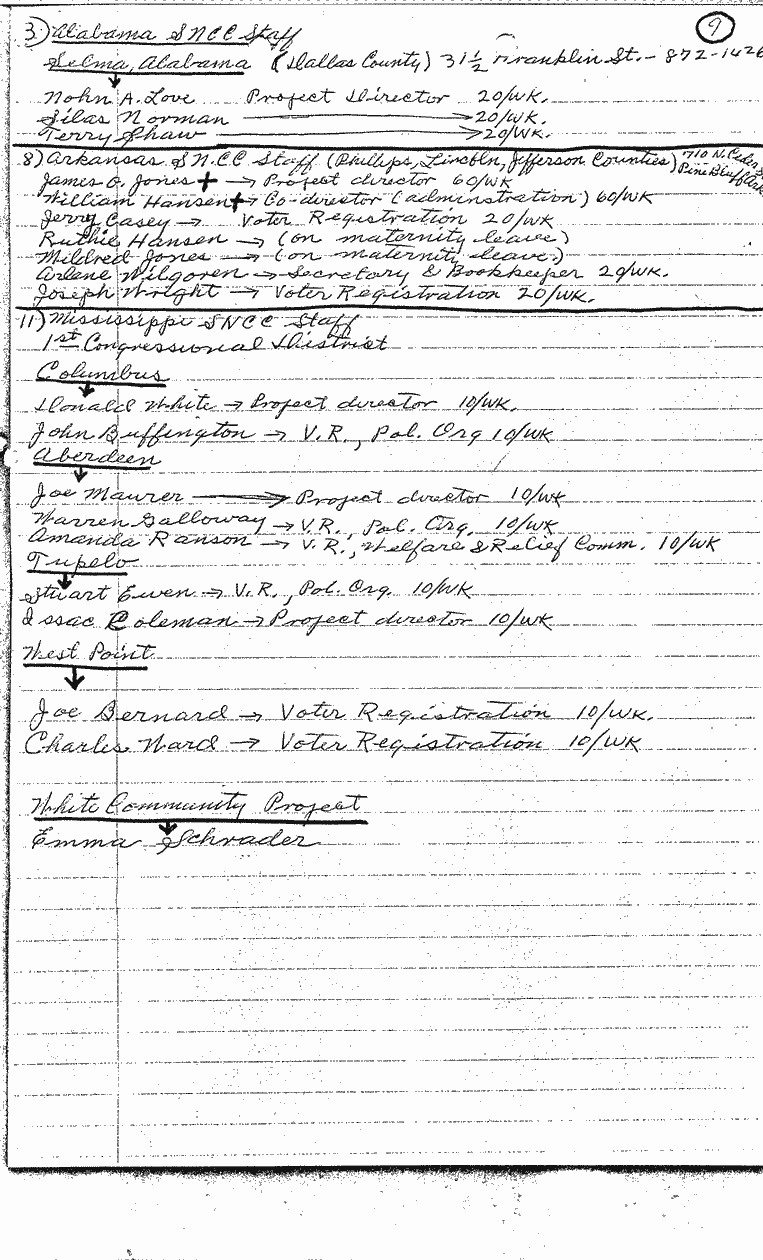 9
3.) Alabama SNCC Staff
Selma, Alabama (Dallas County) 31 1/2 Franklin St. - 872-1426
John A. Love Project Director 20/WK.
Silas Norman → 20/WK.
Terry Shaw → 20/WK.
8) Arkansas SNCC Staff (Phillips, Lincoln, Jefferson Counties) 710 N. Cedar
Pine Bluff, Ark
James O. Jones + → Project director 60/WK
William Hansen + → Co-director (adminstration) 60/WK
Jerry Casey → Voter Registration 20/WK
Ruthie Hansen → (on maternity leave)
Mildred Jones → (on maternity leave.)
Arlene Wilgoren → Secretary & Bookkeeper 20/WK.
Joseph Wright → Voter Registration 20/WK.
11) Mississippi SNCC Staff
1st Congressional District
Columbus
↓
Donald White → Project director 10/WK.
John Buffington → V.R., Pol. Org 10/WK
Aberdeen
↓
Joe Maurer → Project director 10/WK
Warren Galloway → V.R., Pol. Org. 10/WK
Amanda Ranson → V.R., Welfare & Relief Comm. 10/WK
Tupelo
↓
Stuart Ewen → V.R., Pol. Org. 10/WK
Issac Coleman → Project director 10/WK
West Point
↓
Joe Bernard → Voter Registration 10/WK.
Charles Ward → Voter Registration 10/WK
White Community Project
↓
Emma Schrader